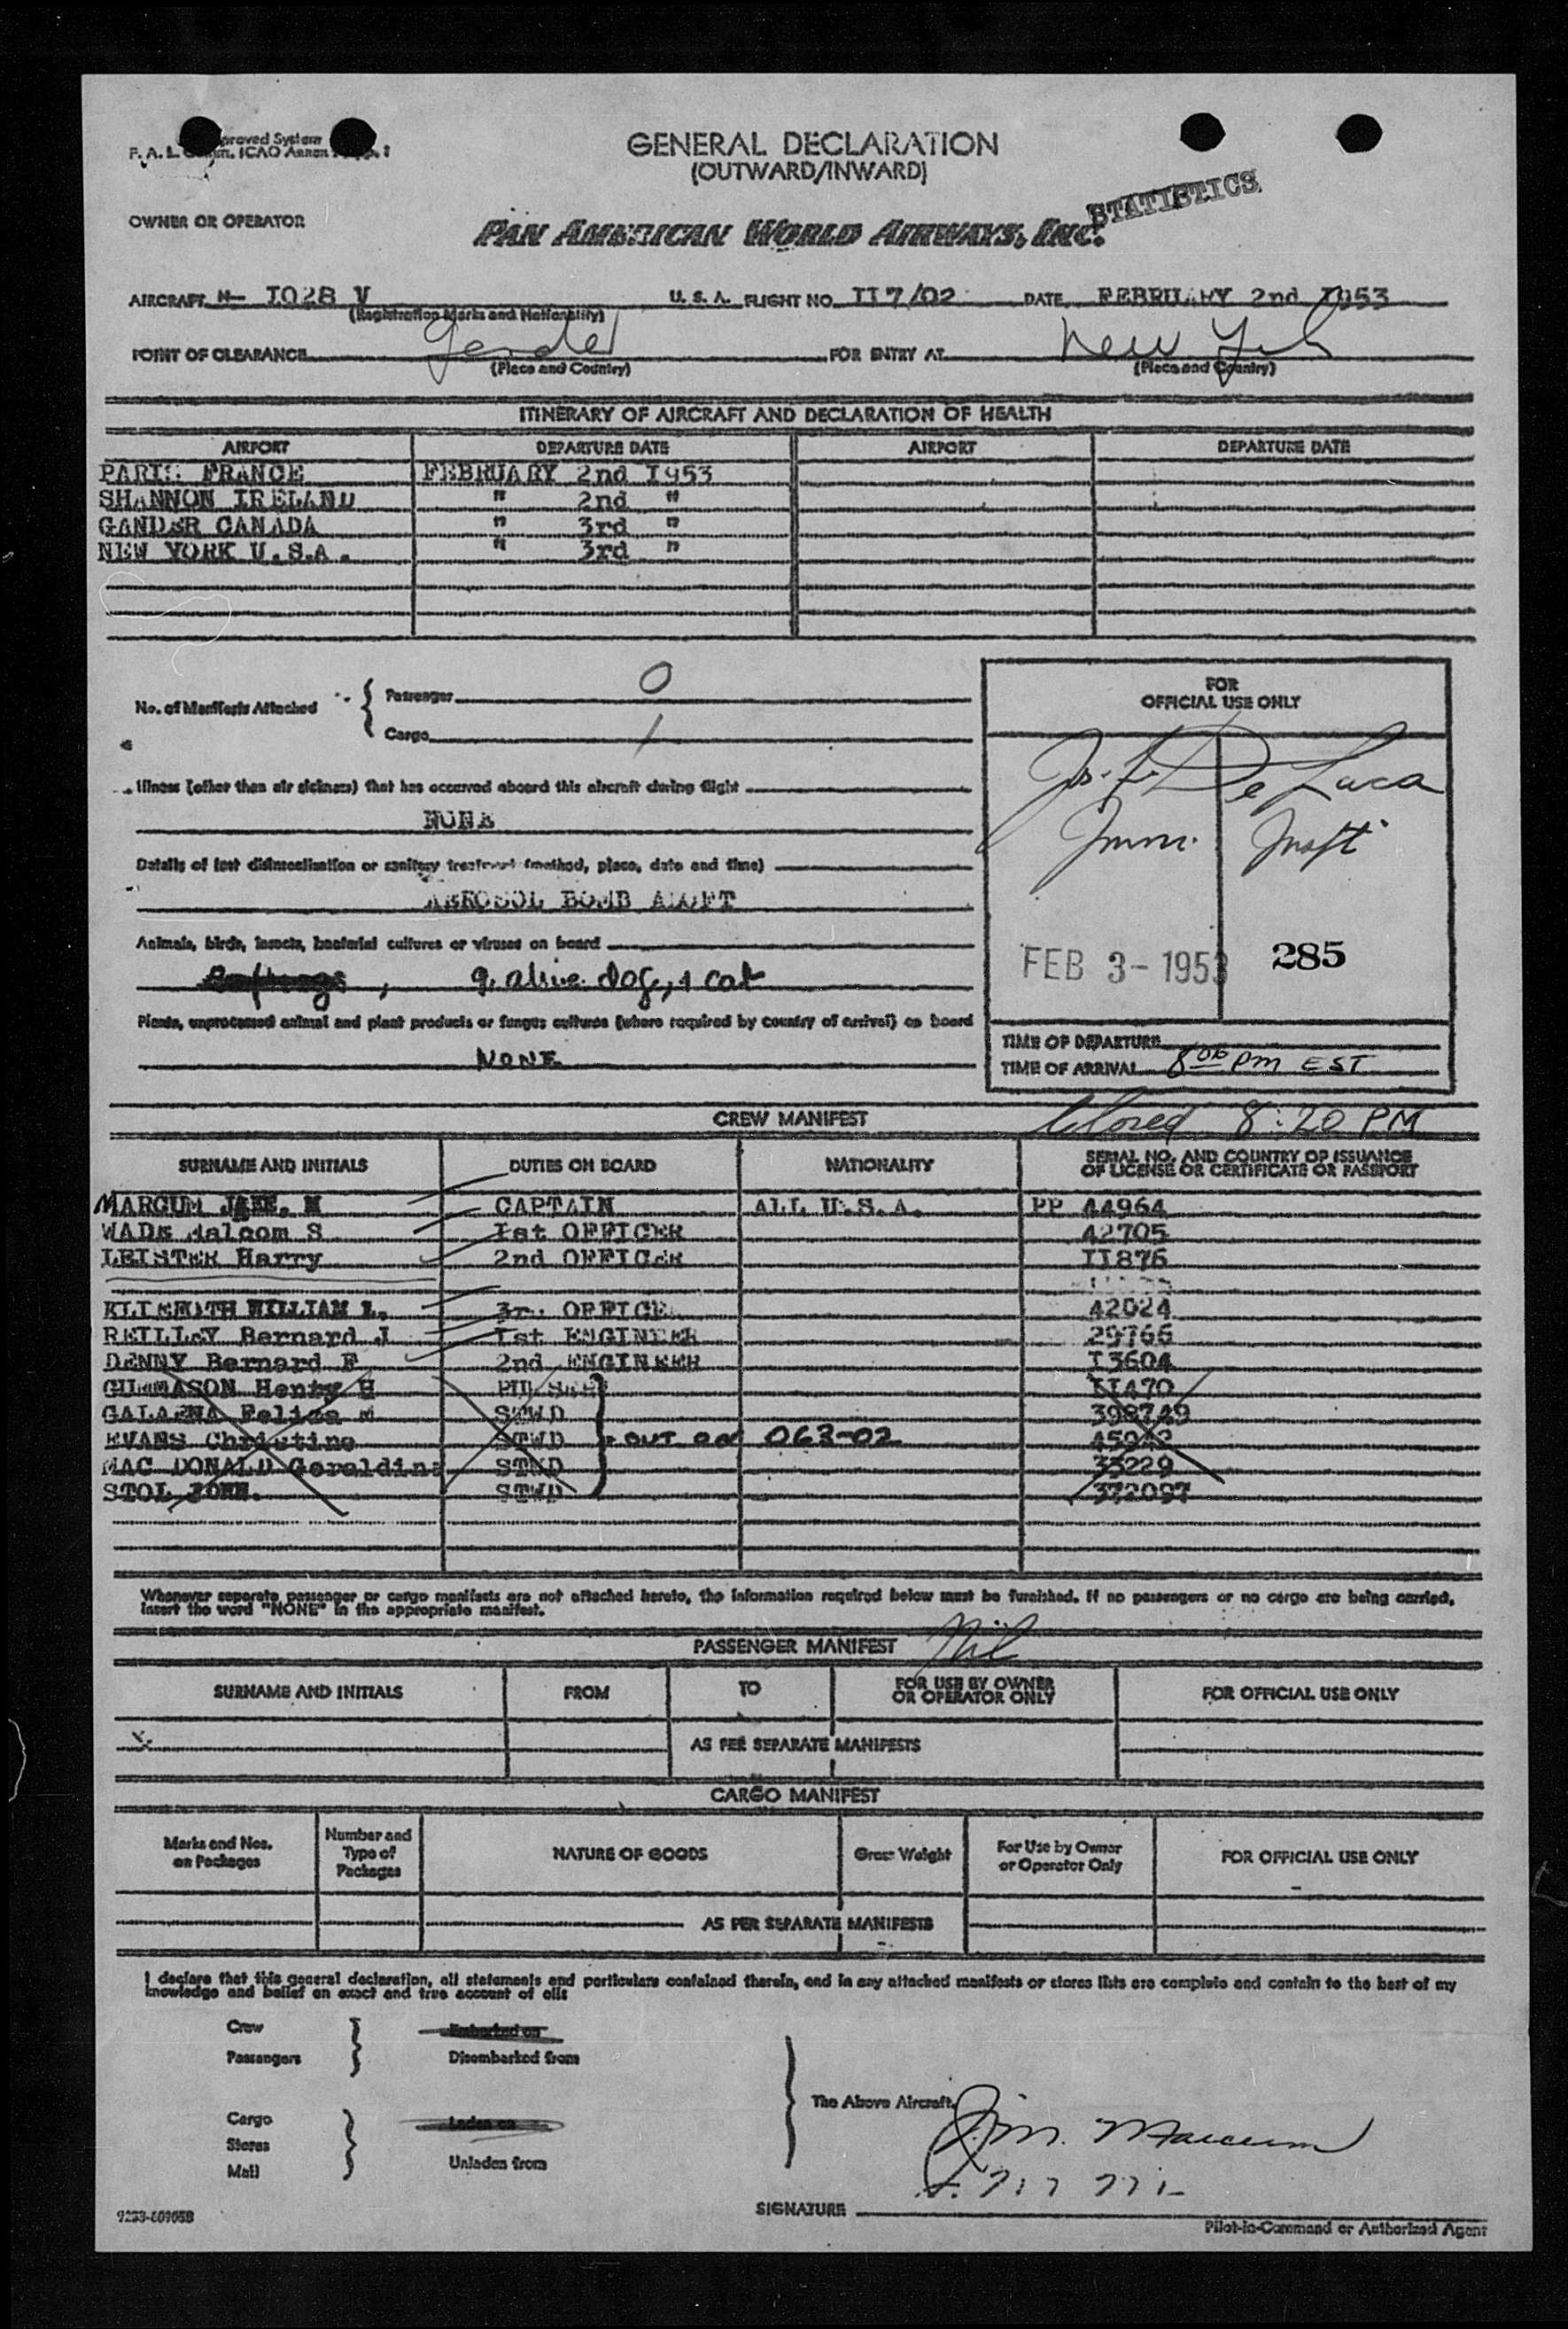 proved System
F. A. L. ICAO Annex
GENERAL DECLARATION
(OUTWARD/INWARD)
STATISTICS
OWNER OR OPERATOR
PAN AMERICAN WORLD AIRWAYS, INC.
AIRCRAFT N- I028 V U. S. A. FLIGHT NO. II7/02 DATE FEBRUARY 2nd I953
(Registration Marks and Nationality)
POINT OF CLEARANCE Gander FOR ENTRY AT New York
(Place and Country) (Place and Country)
ITINERARY OF AIRCRAFT AND DECLARATION OF HEALTH
AIRPORT DEPARTURE DATE AIRPORT DEPARTURE DATE
PARIS FRANCE FEBRUARY 2nd I953
SHANNON IRELAND " 2nd "
GANDER CANADA " 3rd "
NEW YORK U.S.A. " 3rd "
No. of Manifests Attached { Passenger 0
Cargo 1
FOR
OFFICIAL USE ONLY
Jos. F. De Luca
Imm. Inspt
FEB 3- 1953 285
TIME OF DEPARTURE
TIME OF ARRIVAL 8 00 pm EST
Illness (other than air sickness) that has occurred aboard this aircraft during flight
NONE
Details of last disinsectization or sanitary treatment (method, place, date and time)
AEROSOL BOMB ALOFT
Animals, birds, insects, bacterial cultures or viruses on board
, 9 alive dog, 1 cat
Plants, unprocessed animal and plant products or fungus cultures (where required by country of arrival) on board
NONE
CREW MANIFEST Closed 8:20 PM
SURNAME AND INITIALS DUTIES ON BOARD NATIONALITY SERIAL NO. AND COUNTRY OF ISSUANCE
OF LICENSE OR CERTIFICATE OR PASSPORT
MARCUM M CAPTAIN ALL U.S.A. PP 44964
WADE Malcom S Ist OFFICER 42705
LEISTER Harry 2nd OFFICER II876
WILLIAM L. 3rd OFFICE 42024
REILLEY Bernard J Ist ENGINEER 29766
DENNY Bernard F 2nd ENGINEER I3604
Henry H PURSER II470
STWD 398749
EVANS Christine STWD } OUT ON 063-02 45942
MAC DONALD Geraldine STWD 33229
STOL STWD 372097
Whenever separate passenger or cargo manifests are not attached hereto, the information required below must be furnished. If no passengers or no cargo are being carried,
insert the word "NONE" in the appropriate manifest.
PASSENGER MANIFEST Nil
SURNAME AND INITIALS FROM TO FOR USE BY OWNER
OR OPERATOR ONLY FOR OFFICIAL USE ONLY
AS PER SEPARATE MANIFESTS
CARGO MANIFEST
Marks and Nos.
on Packages Number and
Type of
Packages NATURE OF GOODS Gross Weight For Use by Owner
or Operator Only FOR OFFICIAL USE ONLY
AS PER SEPARATE MANIFESTS
I declare that this general declaration, all statements and particulars contained therein, and in any attached manifests or stores lists are complete and contain to the best of my
knowledge and belief an exact and true account of all:
Crew Embarked on
Passengers Disembarked from
The Above Aircraft
Cargo Laden on
Stores
Mail Unladen from
J. M. Marcum
SIGNATURE
9233-609058 Pilot-in-Command or Authorized Agent